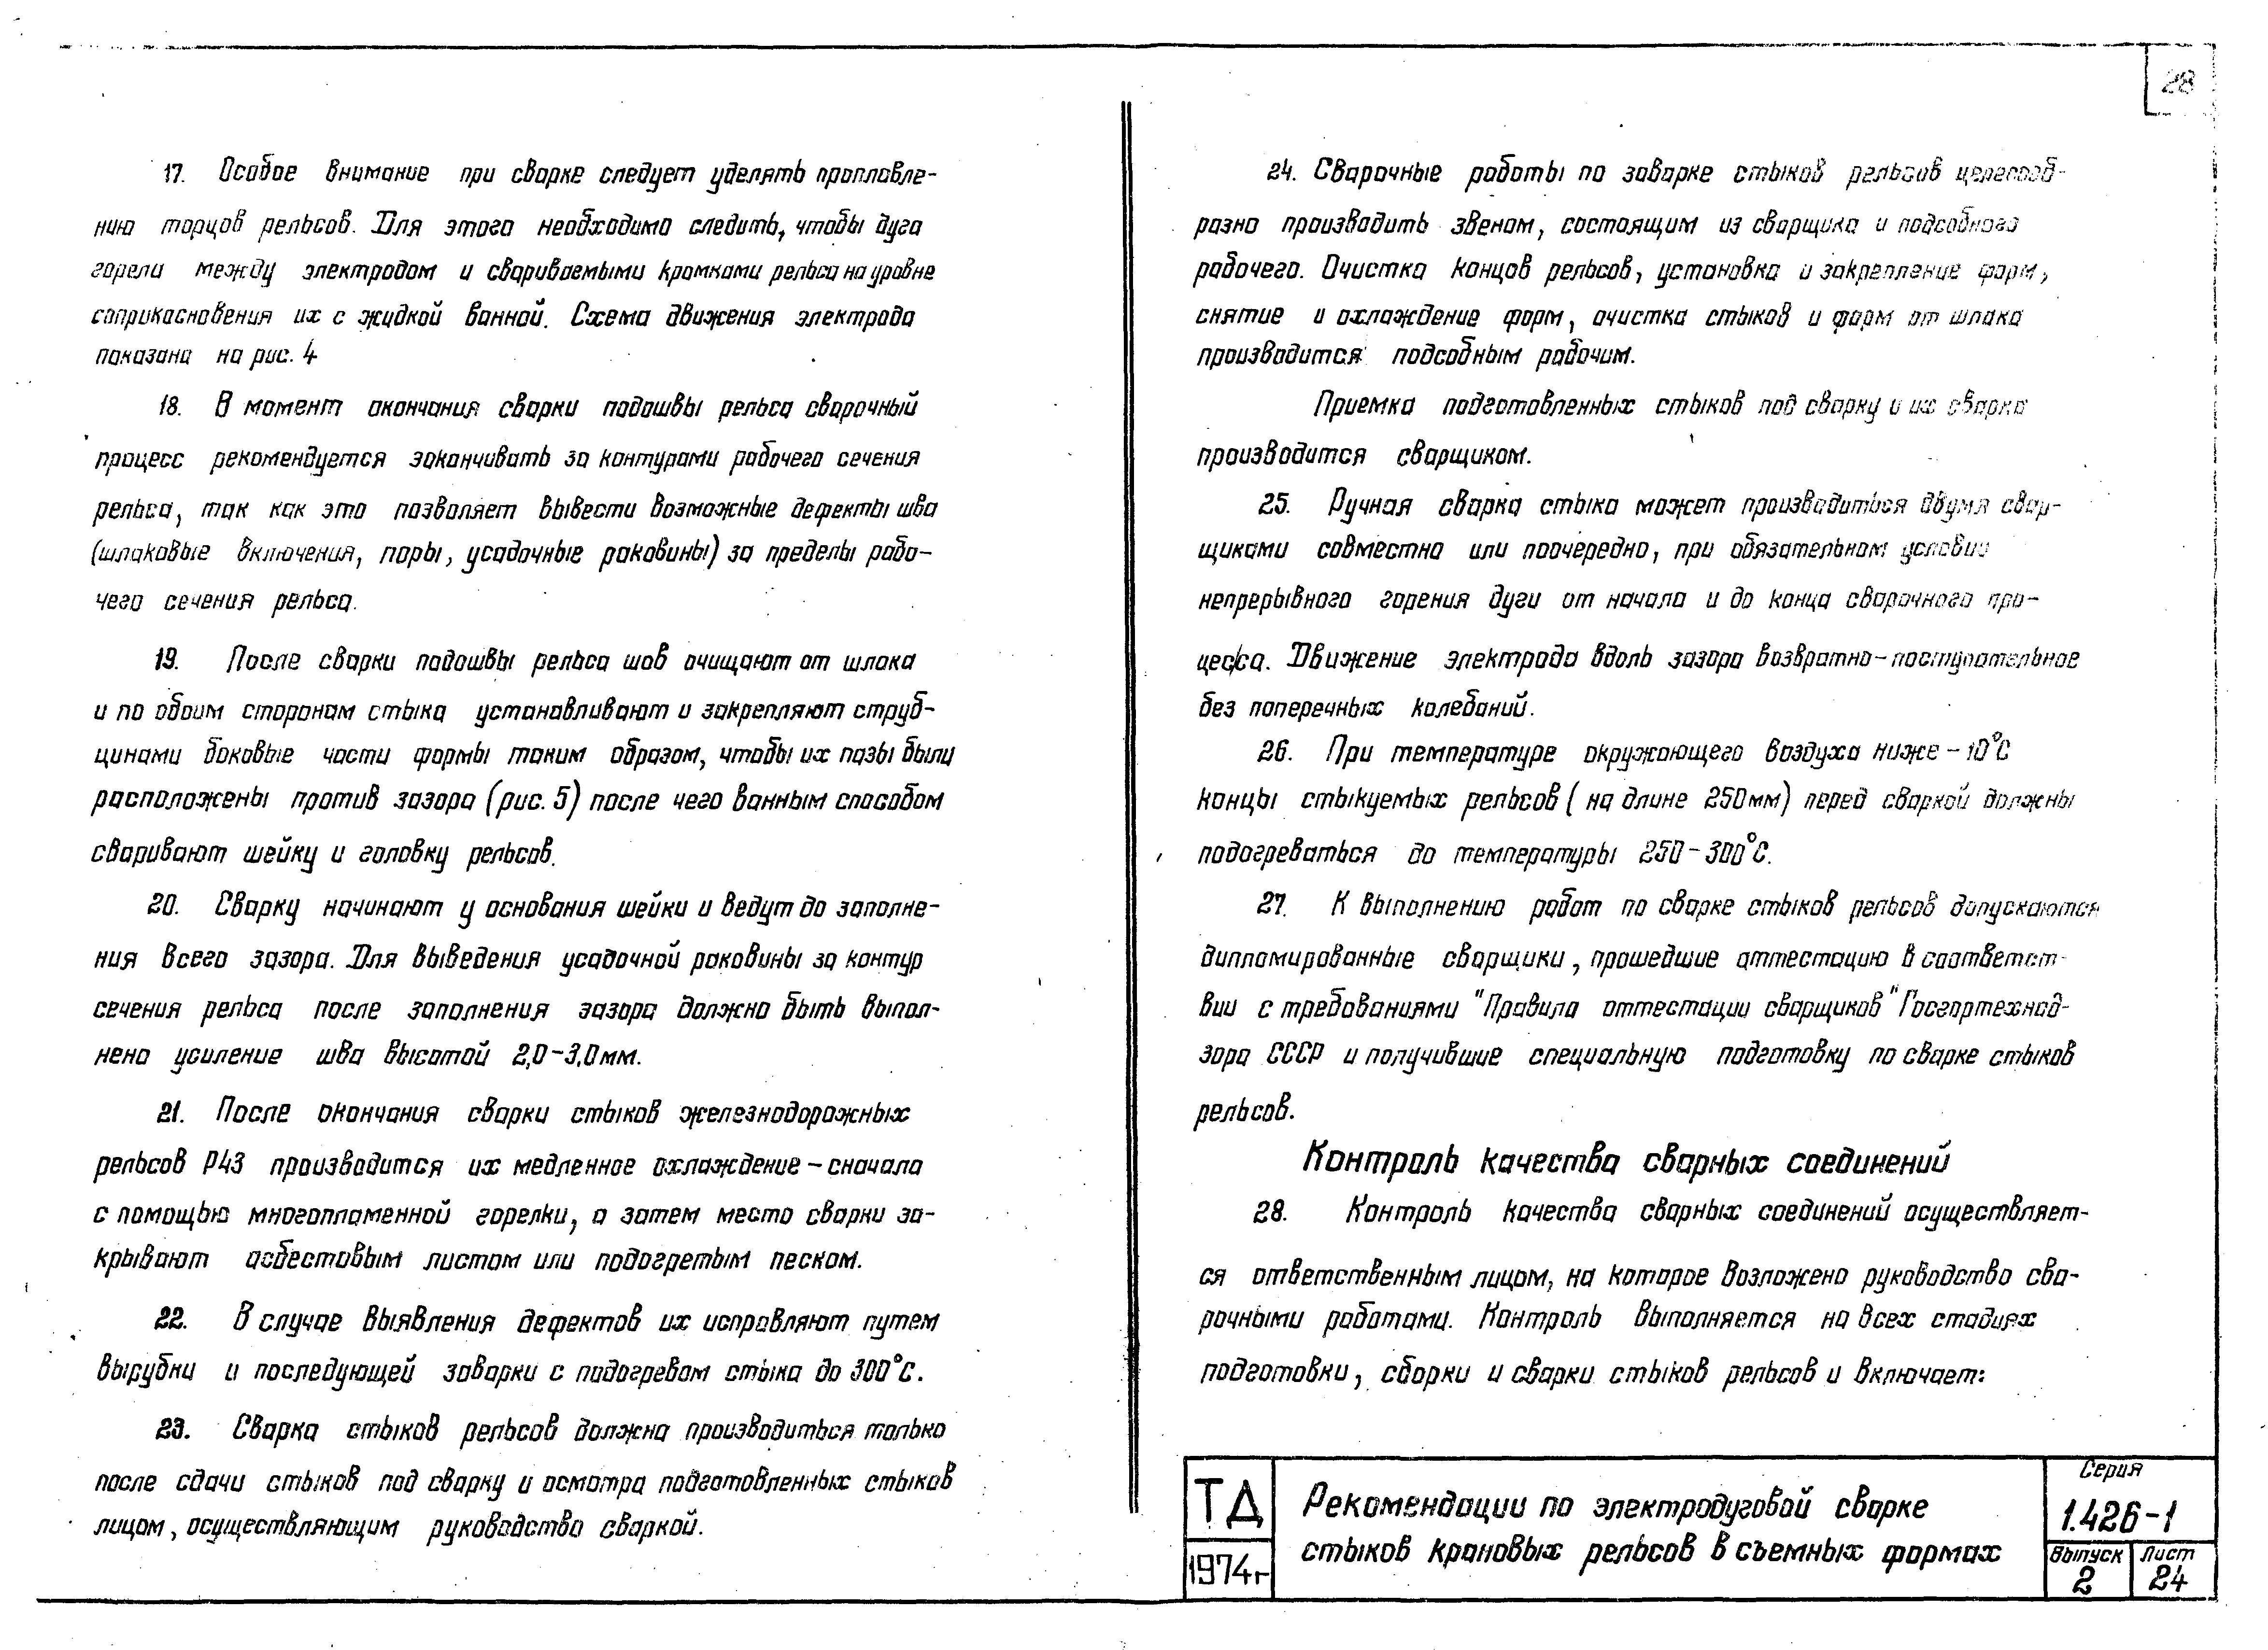 28
17. Особое внимание при сварке следует уделять проплавле-
нию торцов рельсов. Для этого необходимо следить, чтобы дуга
горели между электродом и свариваемыми кромками рельса на уровне
соприкосновения их с жидкой ванной. Схема движения электрода
показана на рис. 4
18. В момент окончания сварки подошвы рельса сварочный
процесс рекомендуется заканчивать за контурами рабочего сечения
рельса, так как это позволяет вывести возможные дефекты шва
(шлаковые включения, поры, усадочные раковины) за пределы рабо-
чего сечения рельса.
19. После сварки подошвы рельса шов очищают от шлака
и по обоим сторонам стыка устанавливают и закрепляют струб-
цинами боковые части формы таким образом, чтобы их пазы были
расположены против зазора (рис. 5) после чего ванным способом
сваривают шейку и головку рельсов.
20. Сварку начинают у основания шейки и ведут до заполне-
ния всего зазора. Для выведения усадочной раковины за контур
сечения рельса после заполнения зазора должно быть выпол-
нено усиление шва высотой 2,0-3,0мм.
21. После окончания сварки стыков железнодорожных
рельсов Р43 производится их медленное охлаждение - сначала
с помощью многопламенной горелки, а затем место сварки за-
крывают асбестовым листом или подогретым песком.
22. В случае выявления дефектов их исправляют путем
вырубки и последующей заварки с подогревом стыка до 300°С.
23. Сварка стыков рельсов должна производиться только
после сдачи стыков под сварку и осмотра подготовленных стыков
лицом, осуществляющим руководство сваркой.
24. Сварочные работы по заварке стыков рельсов целесооб-
разно производить звеном, состоящим из сварщика и подсобного
рабочего. Очистка концов рельсов, установка и закрепление форм,
снятие и охлаждение форм, очистка стыков и форм от шлака
производится подсобным рабочим.
Приемка подготовленных стыков под сварку и их сварка
производится сварщиком.
25. Ручная сварка стыка может производиться двумя свар-
щиками совместно или поочередно, при обязательном условии
непрерывного горения дуги от начала и до конца сварочного про-
цесса. Движение электрода вдоль зазора возвратно-поступательное
без поперечных колебаний.
26. При температуре окружающего воздуха ниже -10°С
концы стыкуемых рельсов (на длине 250мм) перед сваркой должны
подогреваться до температуры 250-300°С.
27. К выполнению работ по сварке стыков рельсов допускаются
дипломированные сварщики, прошедшие аттестацию в соответст-
вии с требованиями "Правила аттестации сварщиков" Госгортехнад-
зора СССР и получившие специальную подготовку по сварке стыков
рельсов.
Контроль качества сварных соединений
28. Контроль качества сварных соединений осуществляет-
ся ответственным лицом, на которое возложено руководство сва-
рочными работами. Контроль выполняется на всех стадиях
подготовки, сборки и сварки стыков рельсов и включает:
ТД
1974г
Рекомендации по электродуговой сварке
стыков крановых рельсов в съемных формах
Серия
1.426-1
Выпуск Лист
2 24